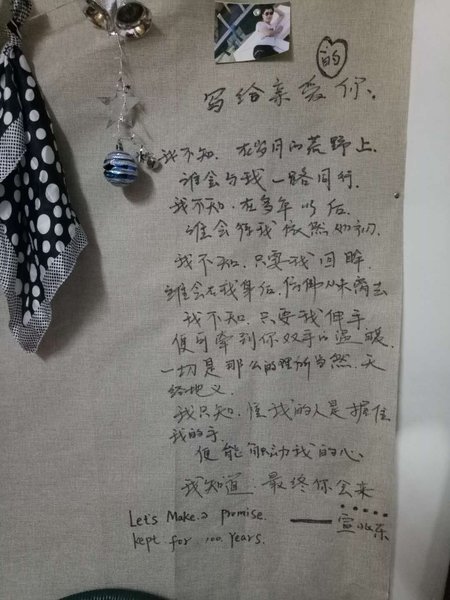 写给亲爱的你、
我不知、在岁月的荒野上、
谁会与我一路同行、
我不知、在多年以后、
谁会待我依然如初、
我不知、只要我回眸、
谁会在我身后、仿佛从未离去
我不知、只要我伸手
便可牵到你双手的温暖、
一切是那么的理所当然、天
经地义、
我只知、懂我的人是握住
我的手、
便能触动我的心、
我知道、最终你会来
Let's Make a promise.
kept for 100 Years.